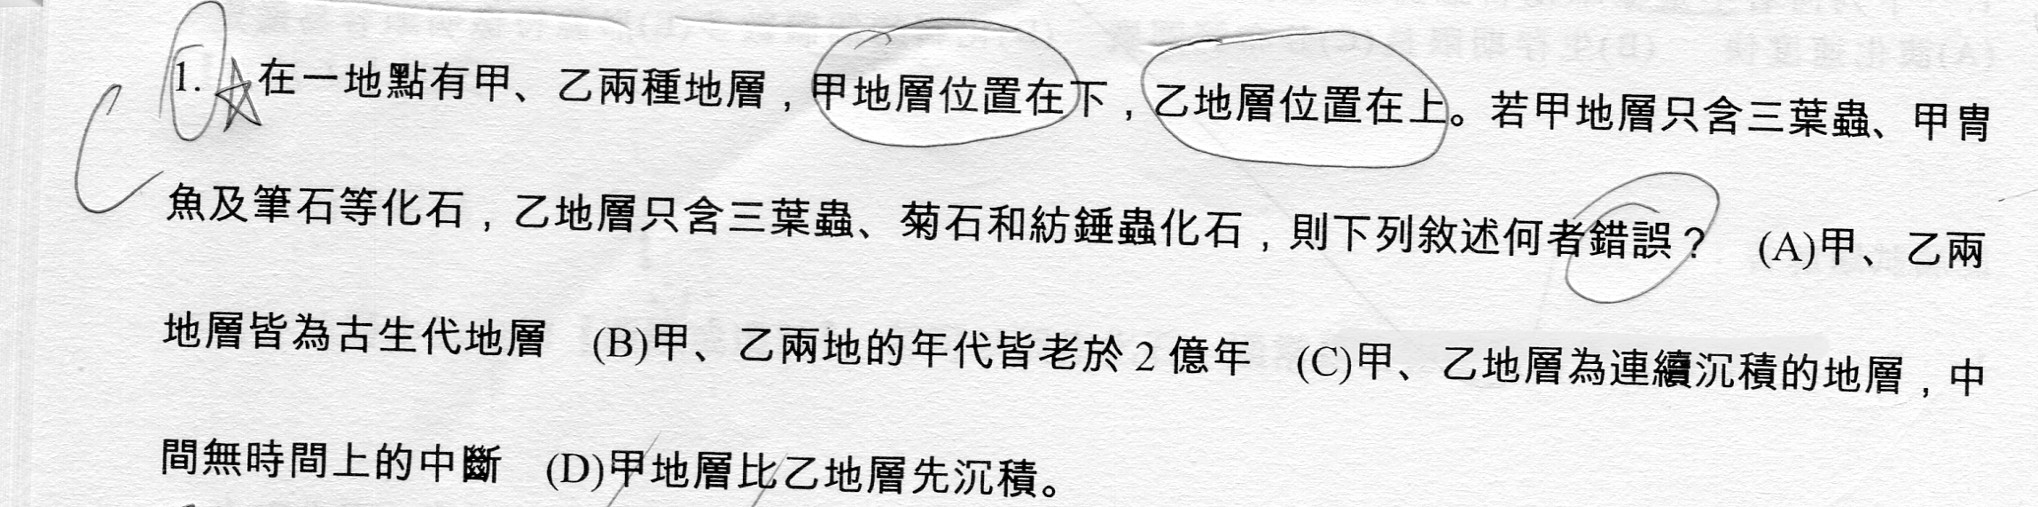 C 1. ☆在一地點有甲、乙兩種地層，甲地層位置在下，乙地層位置在上。若甲地層只含三葉蟲、甲冑
魚及筆石等化石，乙地層只含三葉蟲、菊石和紡錘蟲化石，則下列敘述何者錯誤？ (A)甲、乙兩
地層皆為古生代地層 (B)甲、乙兩地的年代皆老於 2 億年 (C)甲、乙地層為連續沉積的地層，中
間無時間上的中斷 (D)甲地層比乙地層先沉積。